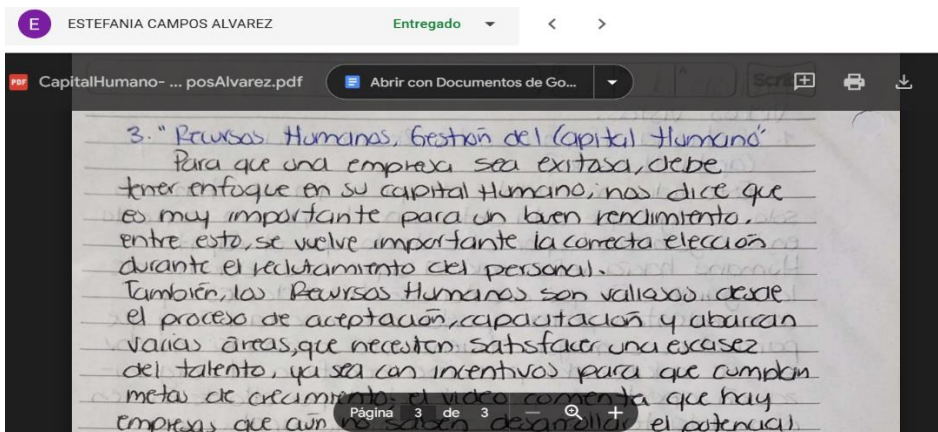 E ESTEFANIA CAMPOS ALVAREZ Entregado < >
PDF CapitalHumano- ... posAlvarez.pdf Abrir con Documentos de Go...
3. "Recursos Humanos, Gestión del Capital Humano"
Para que una empresa sea exitosa, debe
tener enfoque en su capital Humano, nos dice que
es muy importante para un buen rendimiento.
entre esto, se vuelve importante la correcta elección
durante el reclutamiento del personal.
También, los Recursos Humanos son valiosos desde
el proceso de aceptación, capacitación y abarcan
varias áreas, que necesitan satisfacer una escasez
del talento, ya sea con incentivos para que cumplan
metas de crecimiento. el video comenta que hay
empresas que aún no saben desarrollar el potencial
Página 3 de 3